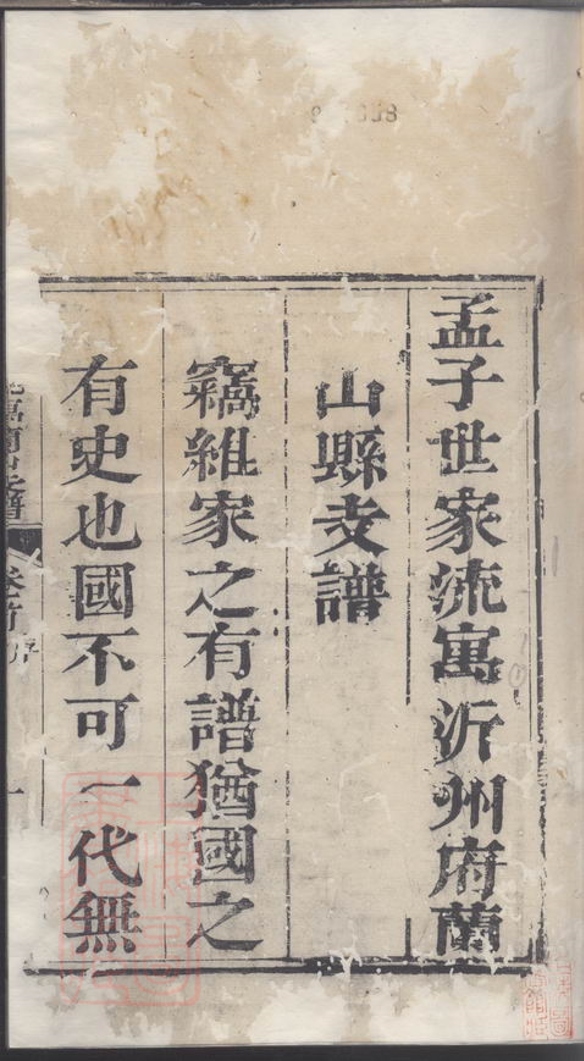 孟子世家流寓沂州府蘭
山縣支譜
竊維家之有譜猶國之
有史也國不可一代無